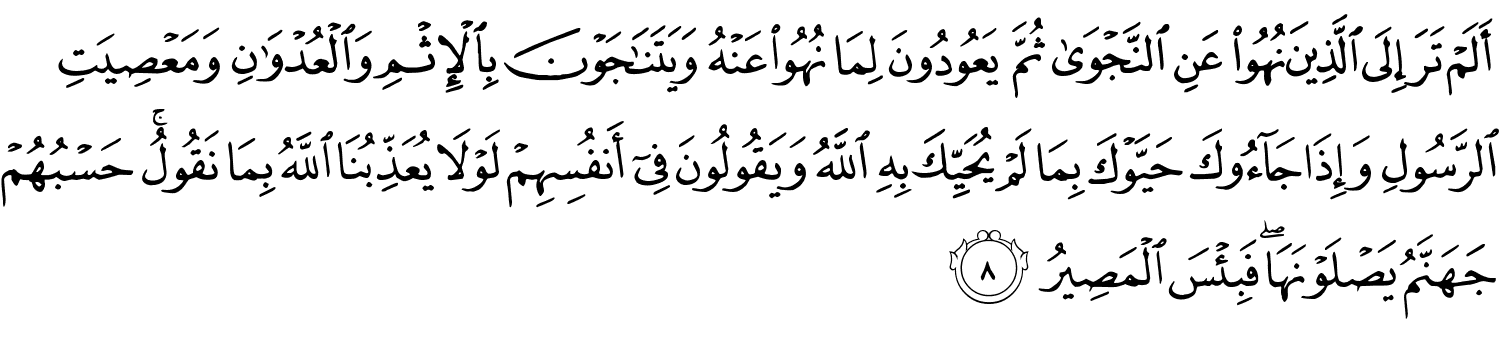 أَلَمۡ تَرَ إِلَى ٱلَّذِينَ نُهُواْ عَنِ ٱلنَّجۡوَىٰ ثُمَّ يَعُودُونَ لِمَا نُهُواْ عَنۡهُ وَيَتَنَٰجَوۡنَ بِٱلۡإِثۡمِ وَٱلۡعُدۡوَٰنِ وَمَعۡصِيَتِ
ٱلرَّسُولِ وَإِذَا جَآءُوكَ حَيَّوۡكَ بِمَا لَمۡ يُحَيِّكَ بِهِ ٱللَّهُ وَيَقُولُونَ فِيٓ أَنفُسِهِمۡ لَوۡلَا يُعَذِّبُنَا ٱللَّهُ بِمَا نَقُولُۚ حَسۡبُهُمۡ
جَهَنَّمُ يَصۡلَوۡنَهَاۖ فَبِئۡسَ ٱلۡمَصِيرُ ٨